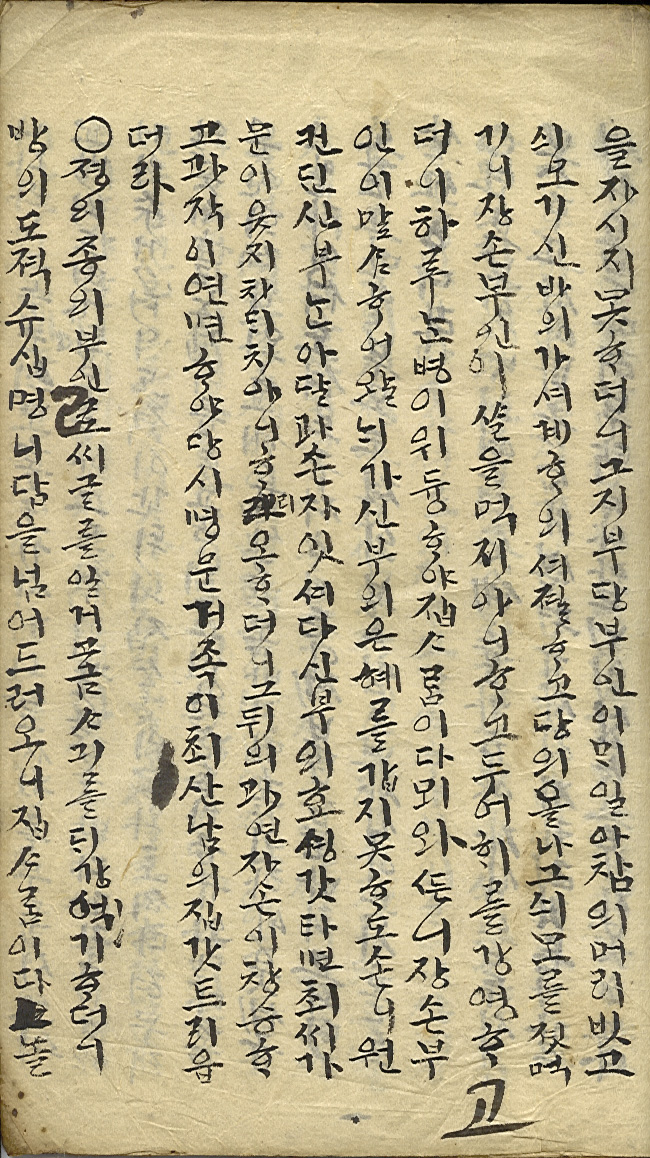 을자시지못ᄒᆞ더니그지부당부인이ᄆᆡ일아참의머리빗고
싀모기신바의가셔계하의셔졀ᄒᆞ고당의올나그싀모를졋먹
기니장손부인이살을먹지아니ᄒᆞ고두어ᄒᆡ를강영ᄒᆞ고
더니하루ᄂᆞᆫ병이위듕ᄒᆞ야집ᄉᆞᄅᆞᆷ이다뫼와ᄯᅥ니장손부
인이말ᄉᆞᆷᄒᆞ여왈ᄂᆡ가신부의은혜를갑지못ᄒᆞ도소니원
컨ᄃᆡ신부ᄂᆞᆫ아달과손자잇셔다신부의효셩갓타면최씨가
문이웃지창ᄃᆡ치아니ᄒᆞ리오ᄒᆞ더니그뒤의과연자손이창승ᄒᆞ
고과작이연면ᄒᆞ야당시명문거족이최산남의집갓트리읍
더라
○졍의종의부인로씨글를알거ᄉᆞ긔를ᄃᆡ강역기ᄒᆞ더니
방의도젹슈십명니담을넘어드러오니집ᄉᆞᄅᆞᆷ이다놀